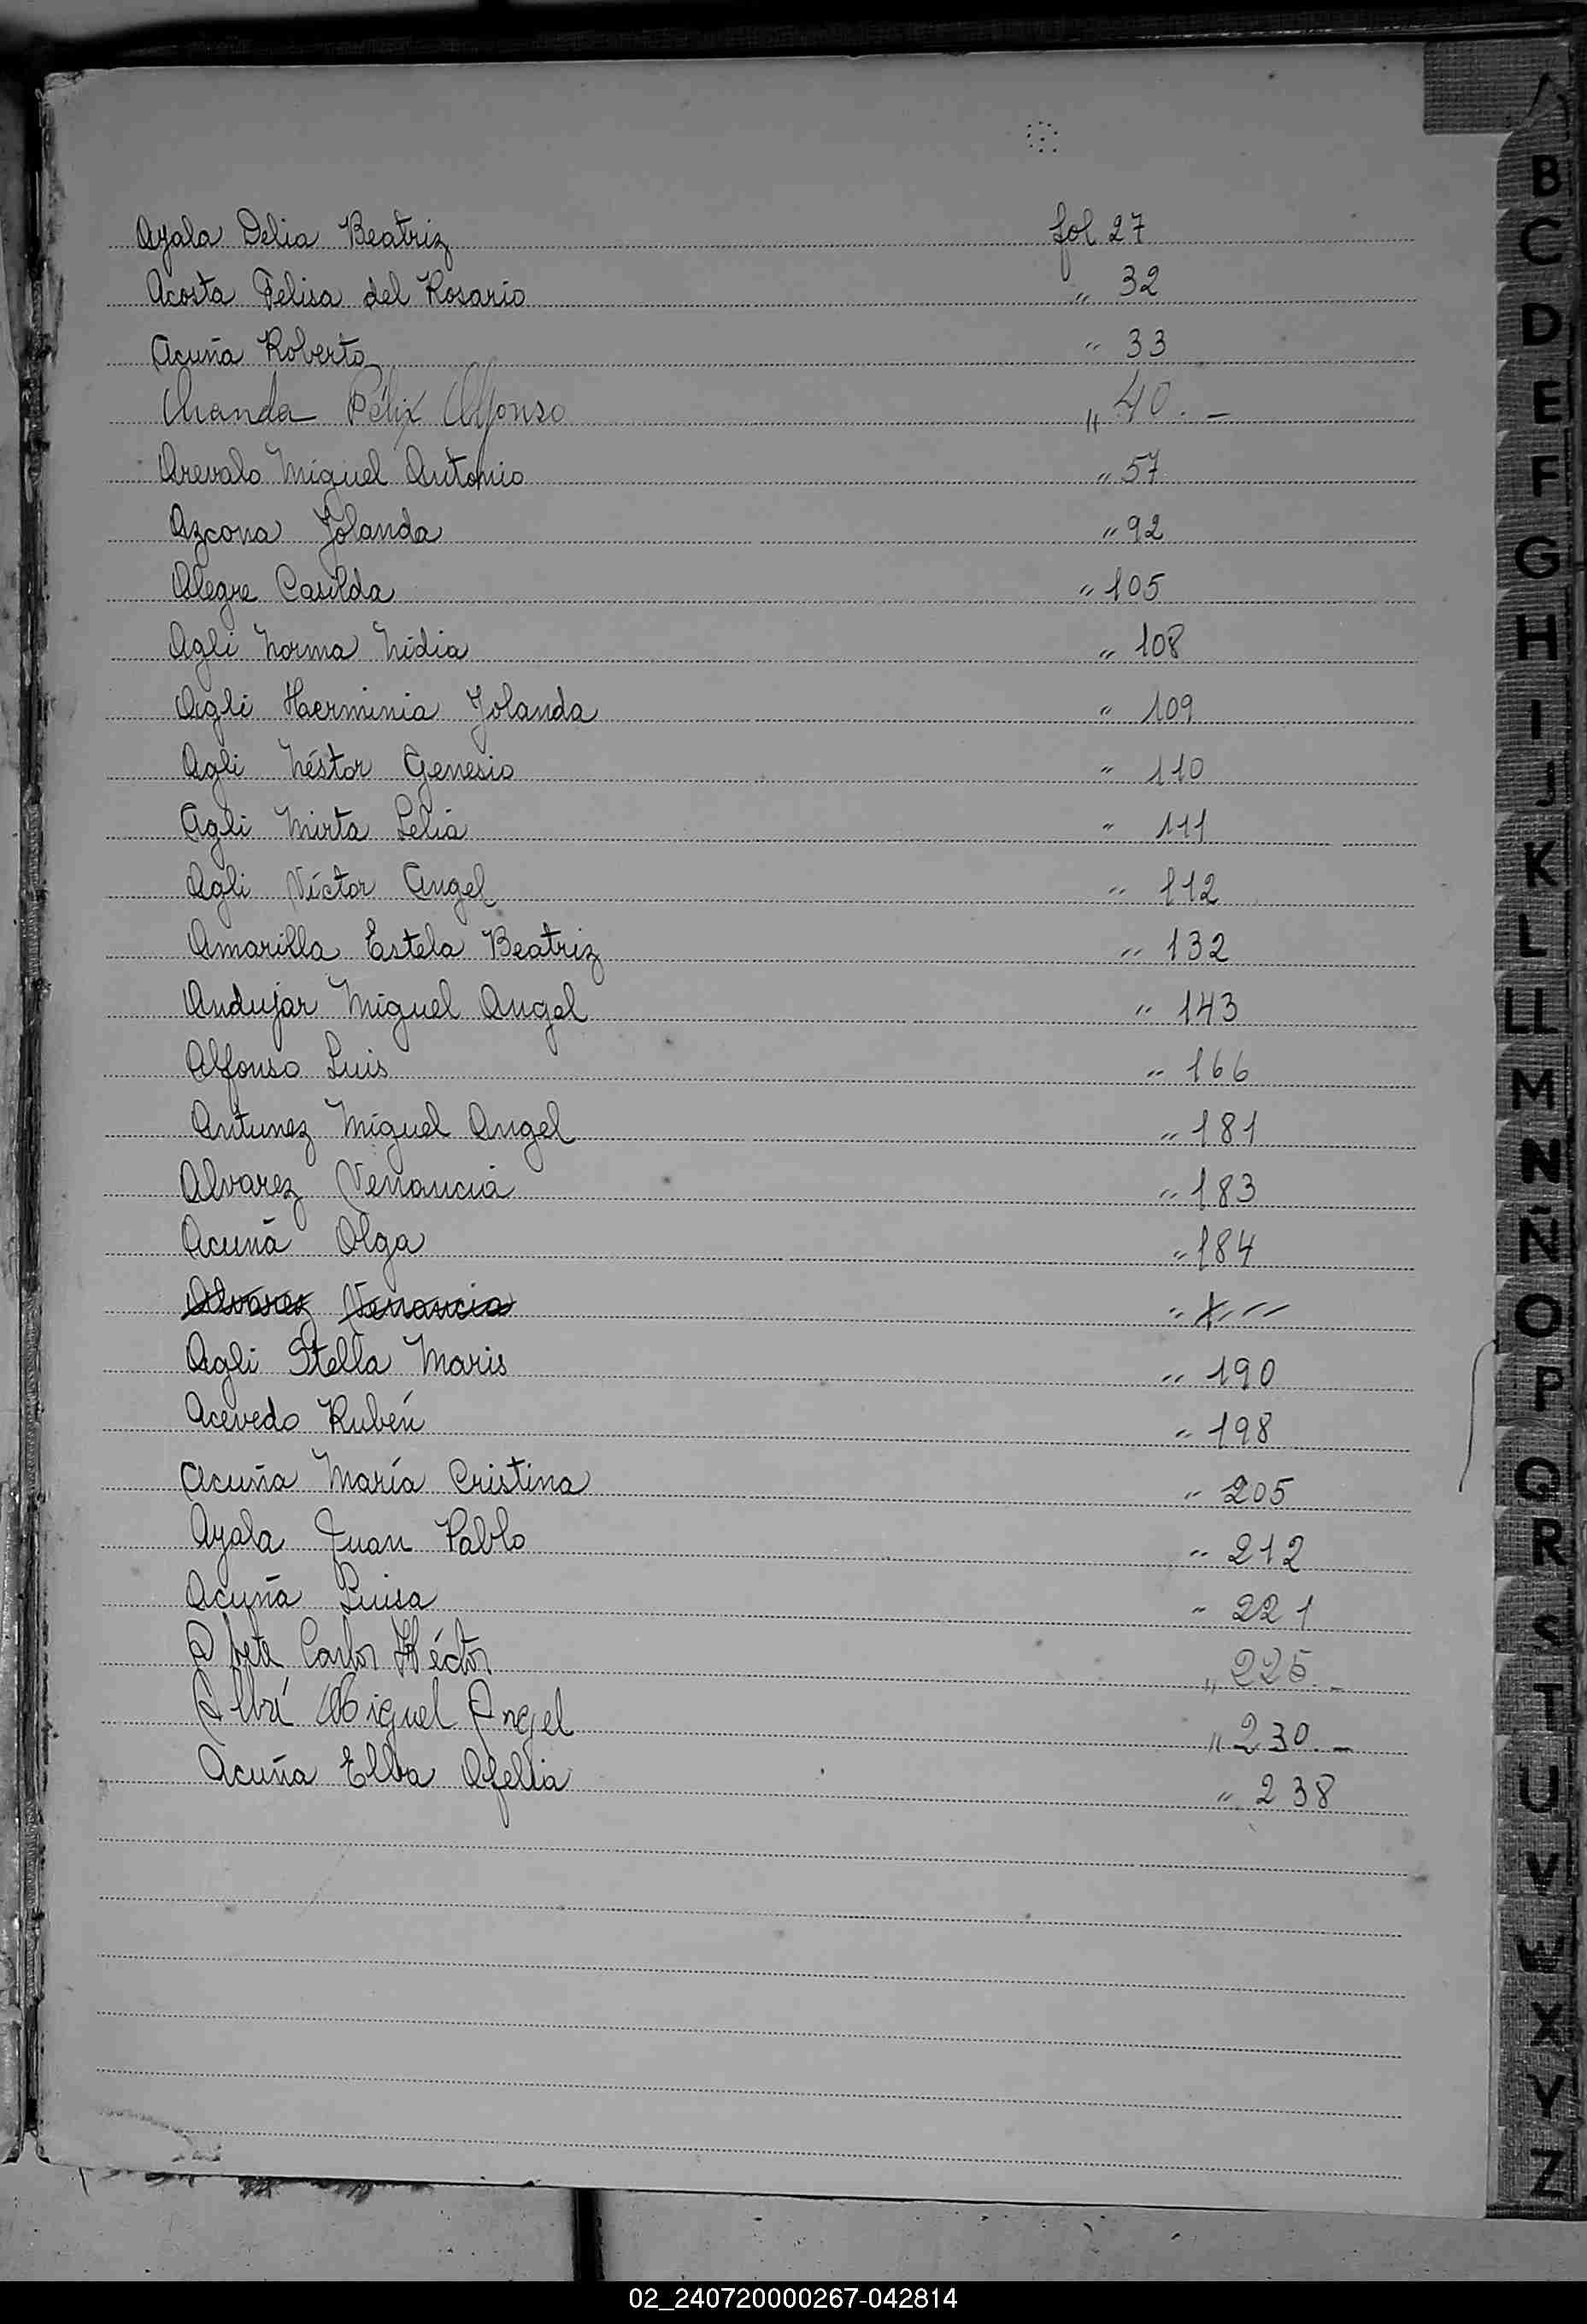 Ayala Delia Beatriz fol 27
Acosta Felisa del Rosario " 32
Acuña Roberto " 33
Aranda Félix Alfonso " 40.-
Arevalo Miguel Antonio " 57
Azcona Yolanda " 92
Alegre Casilda " 105
Agli Norma Nidia " 108
Agli Herminia Yolanda " 109
Agli Néstor Genesio " 110
Agli Mirta Lelia " 111
Agli Víctor Angel " 112
Amarilla Estela Beatriz " 132
Andujar Miguel Angel " 143
Alfonso Luis " 166
Antunez Miguel Angel " 181
Alvarez Venancia " 183
Acuña Olga " 184
Alvarez Venancia "
Agli Stella Maris " 190
Acevedo Rubén " 198
Acuña María Cristina " 205
Ayala Juan Pablo " 212
Acuña Luisa " 221
Carlos Héctor " 225.-
Miguel Angel " 230.-
Acuña Elba Ofelia " 238
A
B
C
D
E
F
G
H
I
J
K
L
LL
M
N
Ñ
O
P
Q
R
S
T
U
V
W
X
Y
Z
02_240720000267-042814